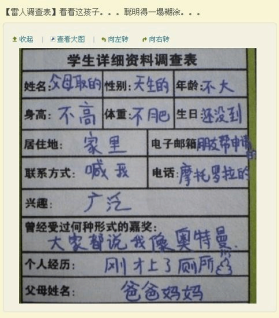 【雷人调查表】看看这孩子。。。聪明得一塌糊涂。。。
收起 查看大图 向左转 向右转
学生详细资料调查表
姓名: 父母取的 性别: 天生的 年龄: 不大
身高: 不高 体重: 不肥 生日 还没到
居住地: 家里 电子邮箱 朋友帮申请的
联系方式: 喊我 电话: 摩托罗拉的
兴趣: 广泛
曾经受过何种形式的嘉奖:
大家都说我像奥特曼.
个人经历: 刚才上了厕所
父母姓名: 爸爸妈妈